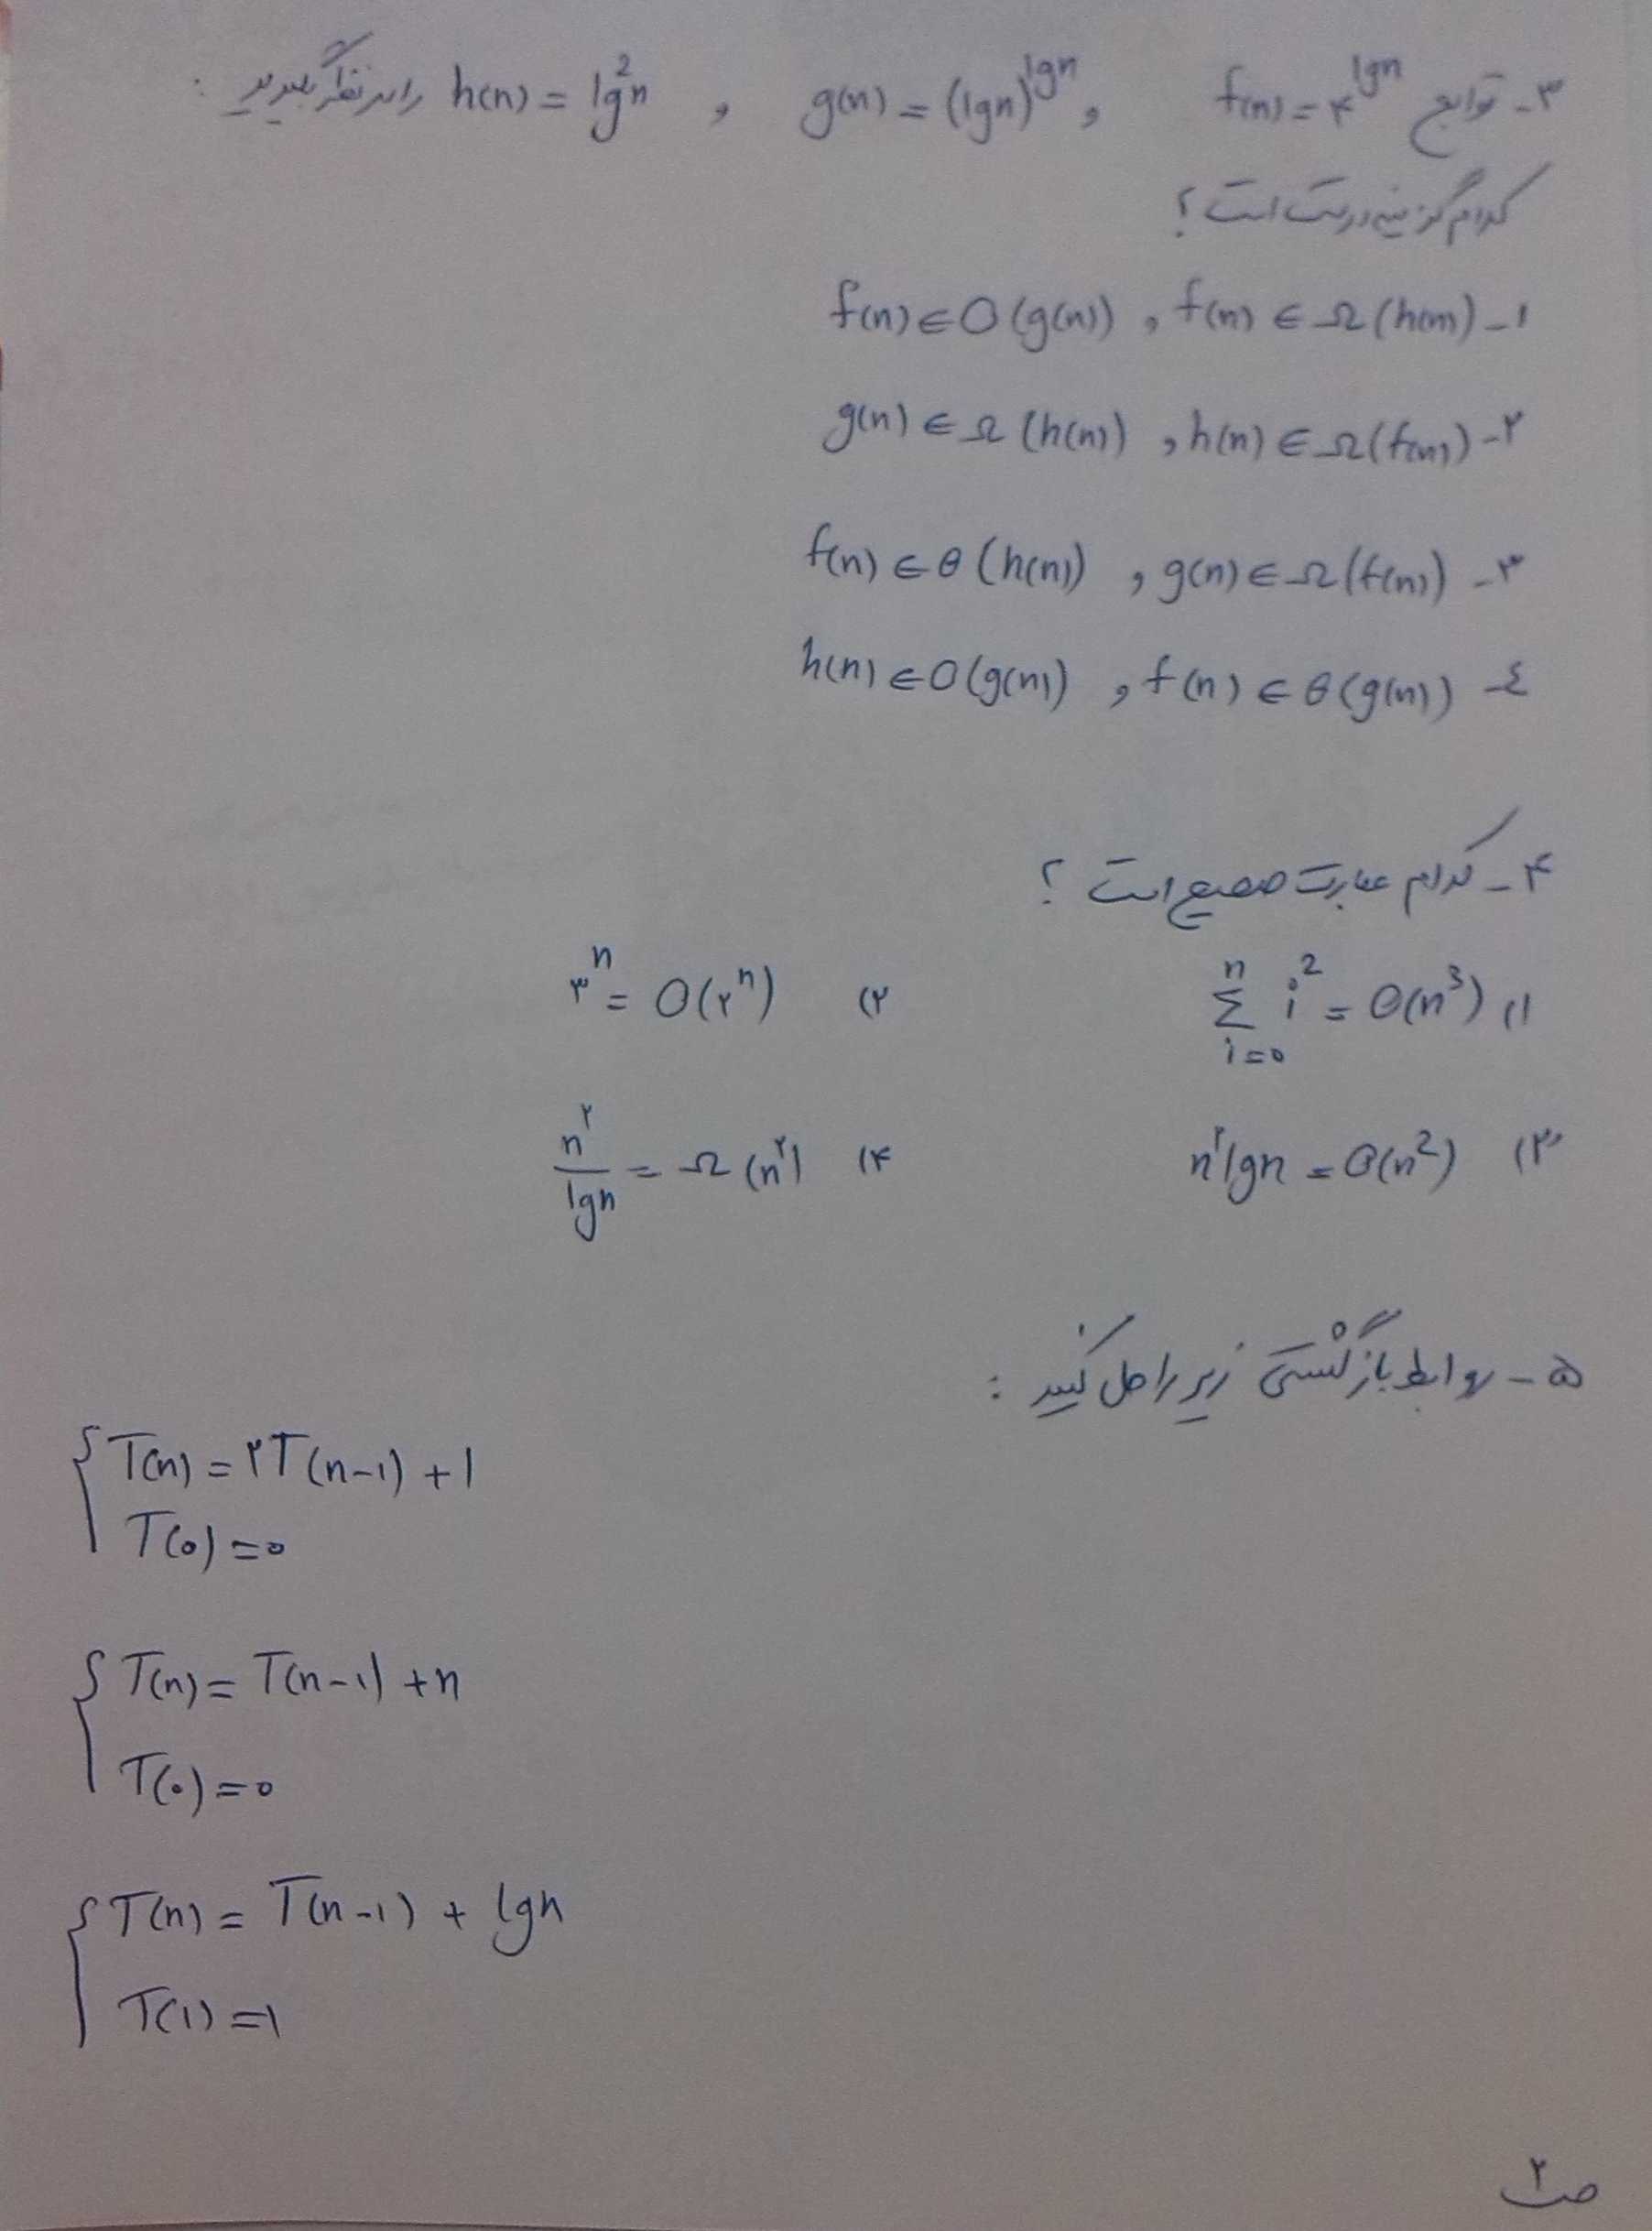 ۳- توابع f(n) = ۴^lgn , g(n) = (lgn)^lgn , h(n) = lg²n را در نظر بگیرید :
کدام گزینه درست است ؟
۱- f(n) ∈ Ω(h(n)) , f(n) ∈ O(g(n))
۲- h(n) ∈ Ω(f(n)) , g(n) ∈ Ω(h(n))
۳- g(n) ∈ Ω(f(n)) , f(n) ∈ θ(h(n))
٤- f(n) ∈ θ(g(n)) , h(n) ∈ O(g(n))
۴- کدام عبارت صحیح است ؟
۱) Σ_{i=0}^{n} i² = Θ(n³) ۲) ۳^n = O(۲^n)
۳) n^۲ lgn = Θ(n²) ۴) n^۲/lgn = Ω(n^۲)
۵- روابط بازگشتی زیر را حل کنید :
{ T(n) = ۲T(n-1) + 1
T(0) = 0
{ T(n) = T(n-1) + n
T(0) = 0
{ T(n) = T(n-1) + lgn
T(1) = 1
ص ۲